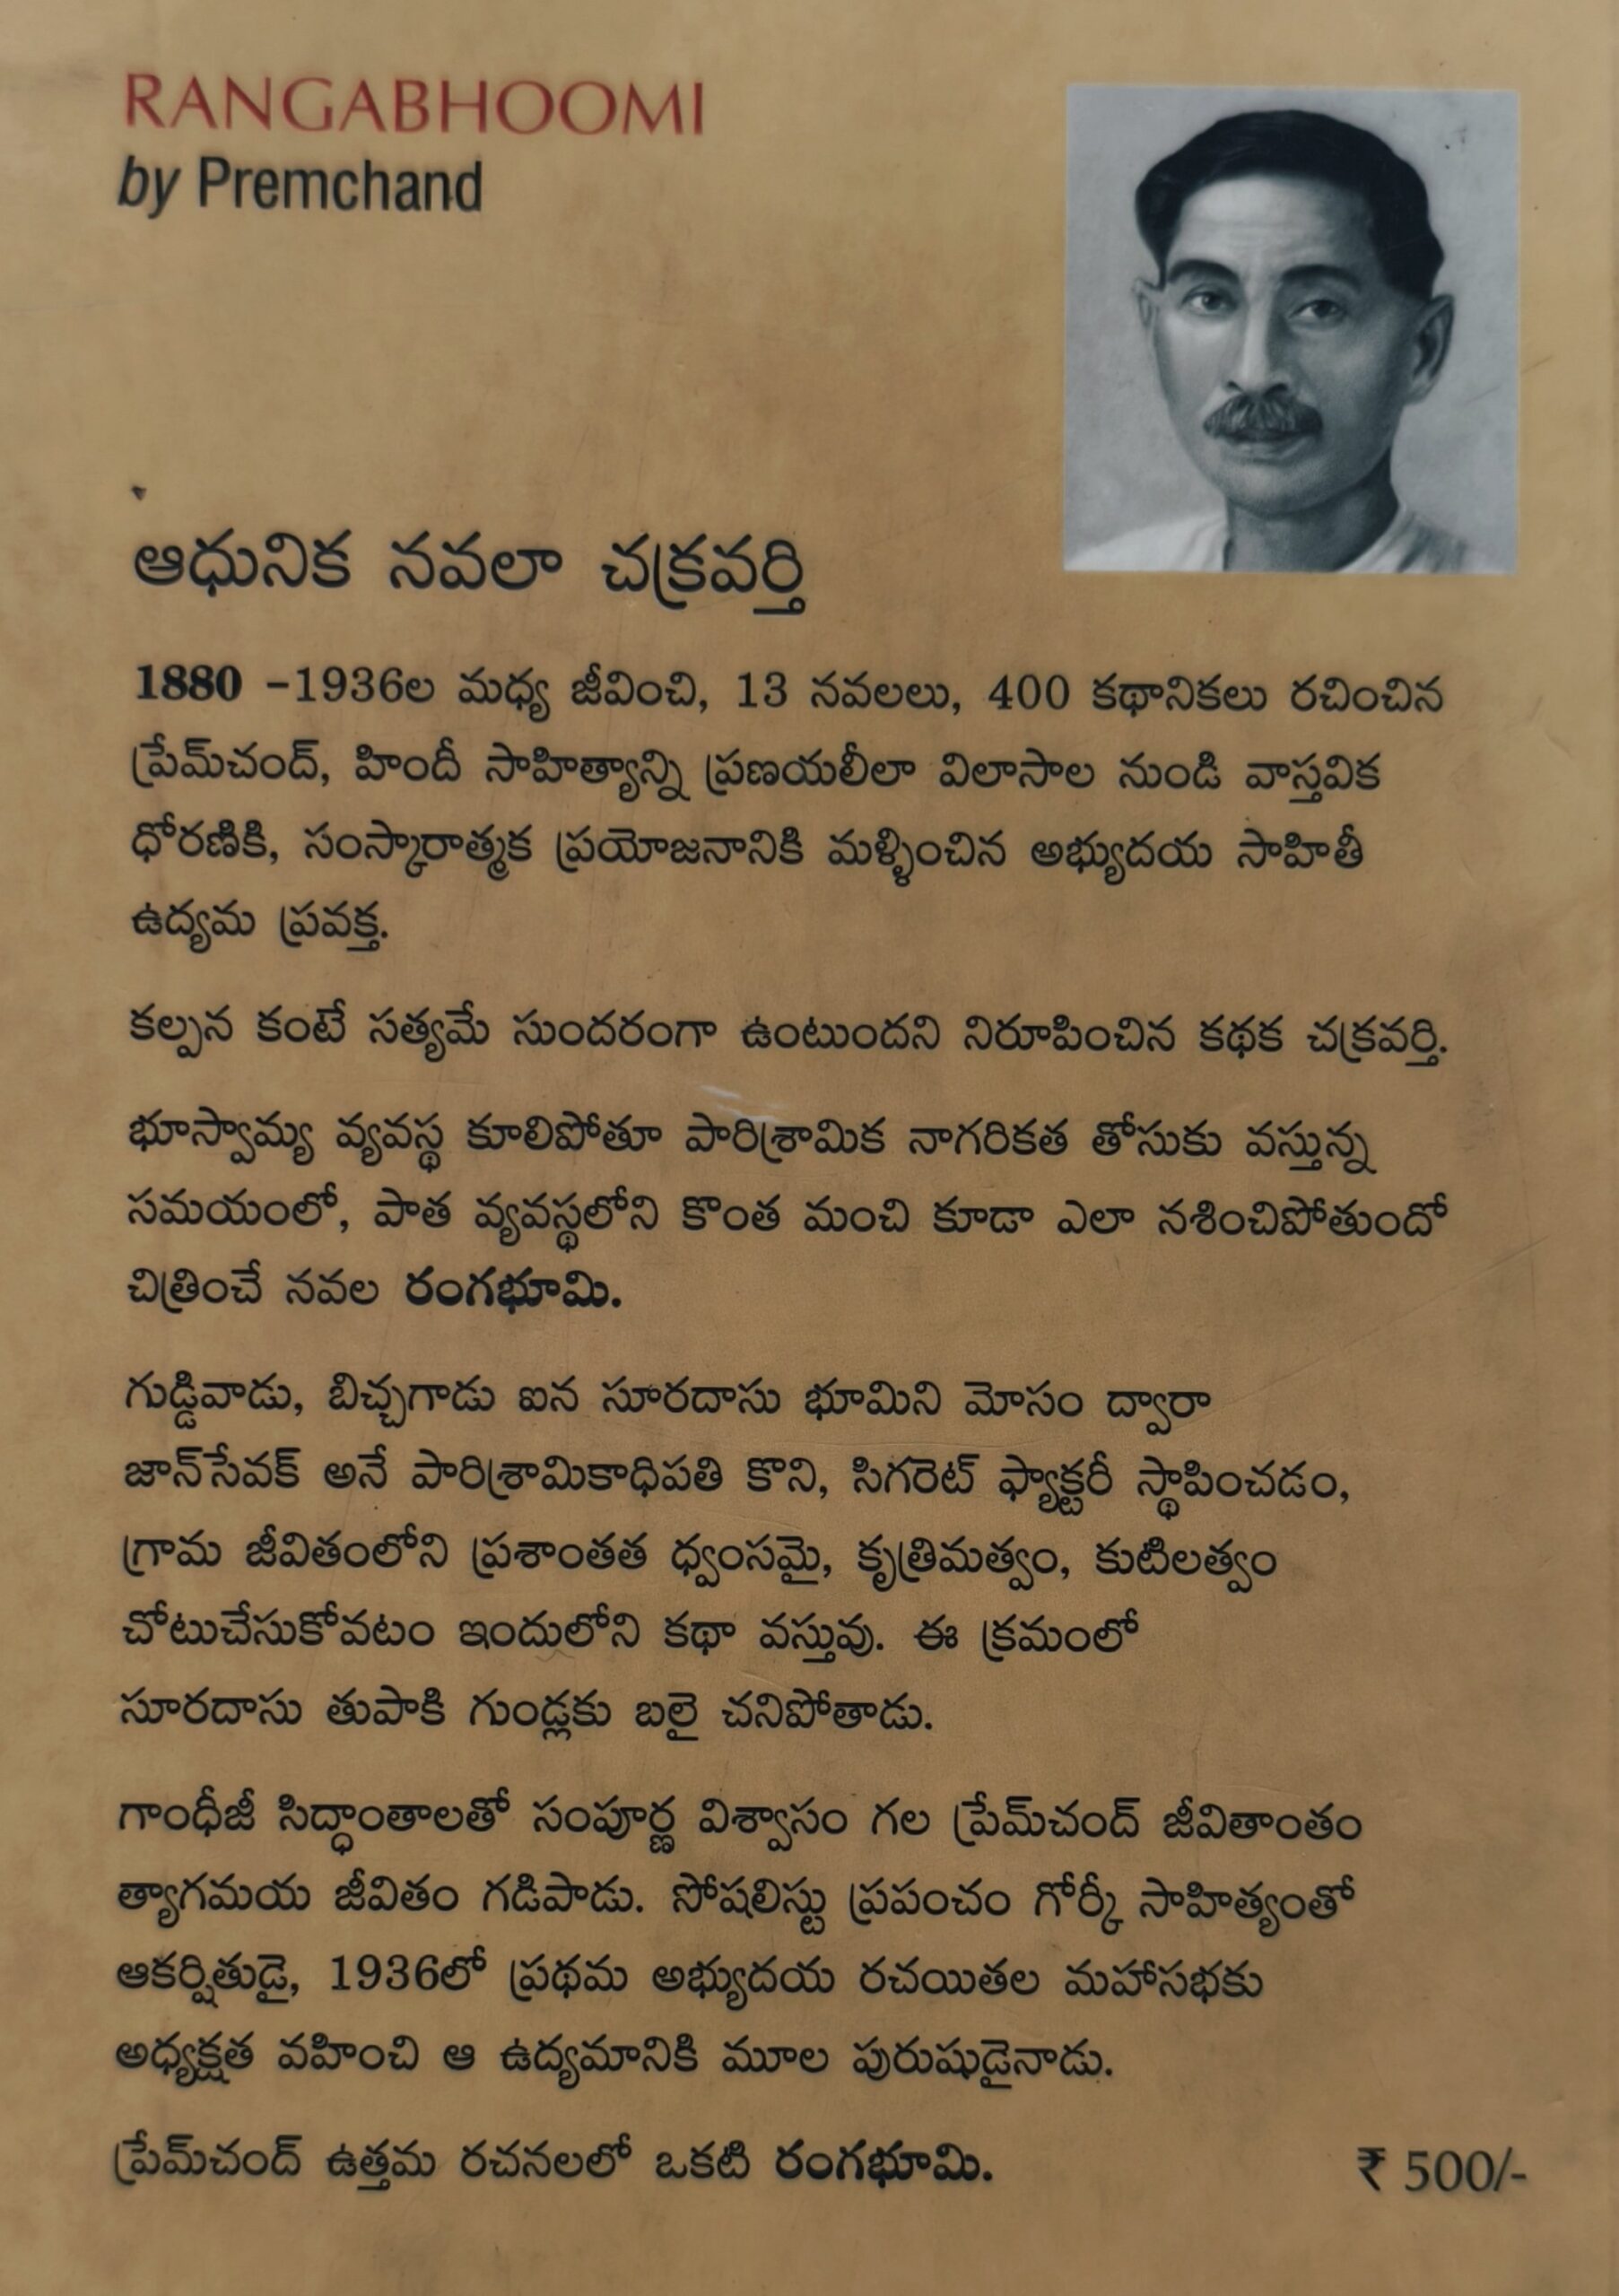 RANGABHOOMI
by Premchand
ఆధునిక నవలా చక్రవర్తి
1880 -1936ల మధ్య జీవించి, 13 నవలలు, 400 కథానికలు రచించిన
ప్రేమ్‌చంద్, హిందీ సాహిత్యాన్ని ప్రణయలీలా విలాసాల నుండి వాస్తవిక
ధోరణికి, సంస్కారాత్మక ప్రయోజనానికి మళ్ళించిన అభ్యుదయ సాహితీ
ఉద్యమ ప్రవక్త.
కల్పన కంటే సత్యమే సుందరంగా ఉంటుందని నిరూపించిన కథక చక్రవర్తి.
భూస్వామ్య వ్యవస్థ కూలిపోతూ పారిశ్రామిక నాగరికత తోసుకు వస్తున్న
సమయంలో, పాత వ్యవస్థలోని కొంత మంచి కూడా ఎలా నశించిపోతుందో
చిత్రించే నవల రంగభూమి.
గుడ్డివాడు, బిచ్చగాడు ఐన సూరదాసు భూమిని మోసం ద్వారా
జాన్‌సేవక్ అనే పారిశ్రామికాధిపతి కొని, సిగరెట్ ఫ్యాక్టరీ స్థాపించడం,
గ్రామ జీవితంలోని ప్రశాంతత ధ్వంసమై, కృత్రిమత్వం, కుటిలత్వం
చోటుచేసుకోవటం ఇందులోని కథా వస్తువు. ఈ క్రమంలో
సూరదాసు తుపాకి గుండ్లకు బలై చనిపోతాడు.
గాంధీజీ సిద్ధాంతాలతో సంపూర్ణ విశ్వాసం గల ప్రేమ్‌చంద్ జీవితాంతం
త్యాగమయ జీవితం గడిపాడు. సోషలిస్టు ప్రపంచం గోర్కీ సాహిత్యంతో
ఆకర్షితుడై, 1936లో ప్రథమ అభ్యుదయ రచయితల మహాసభకు
అధ్యక్షత వహించి ఆ ఉద్యమానికి మూల పురుషుడైనాడు.
ప్రేమ్‌చంద్ ఉత్తమ రచనలలో ఒకటి రంగభూమి.
₹ 500/-